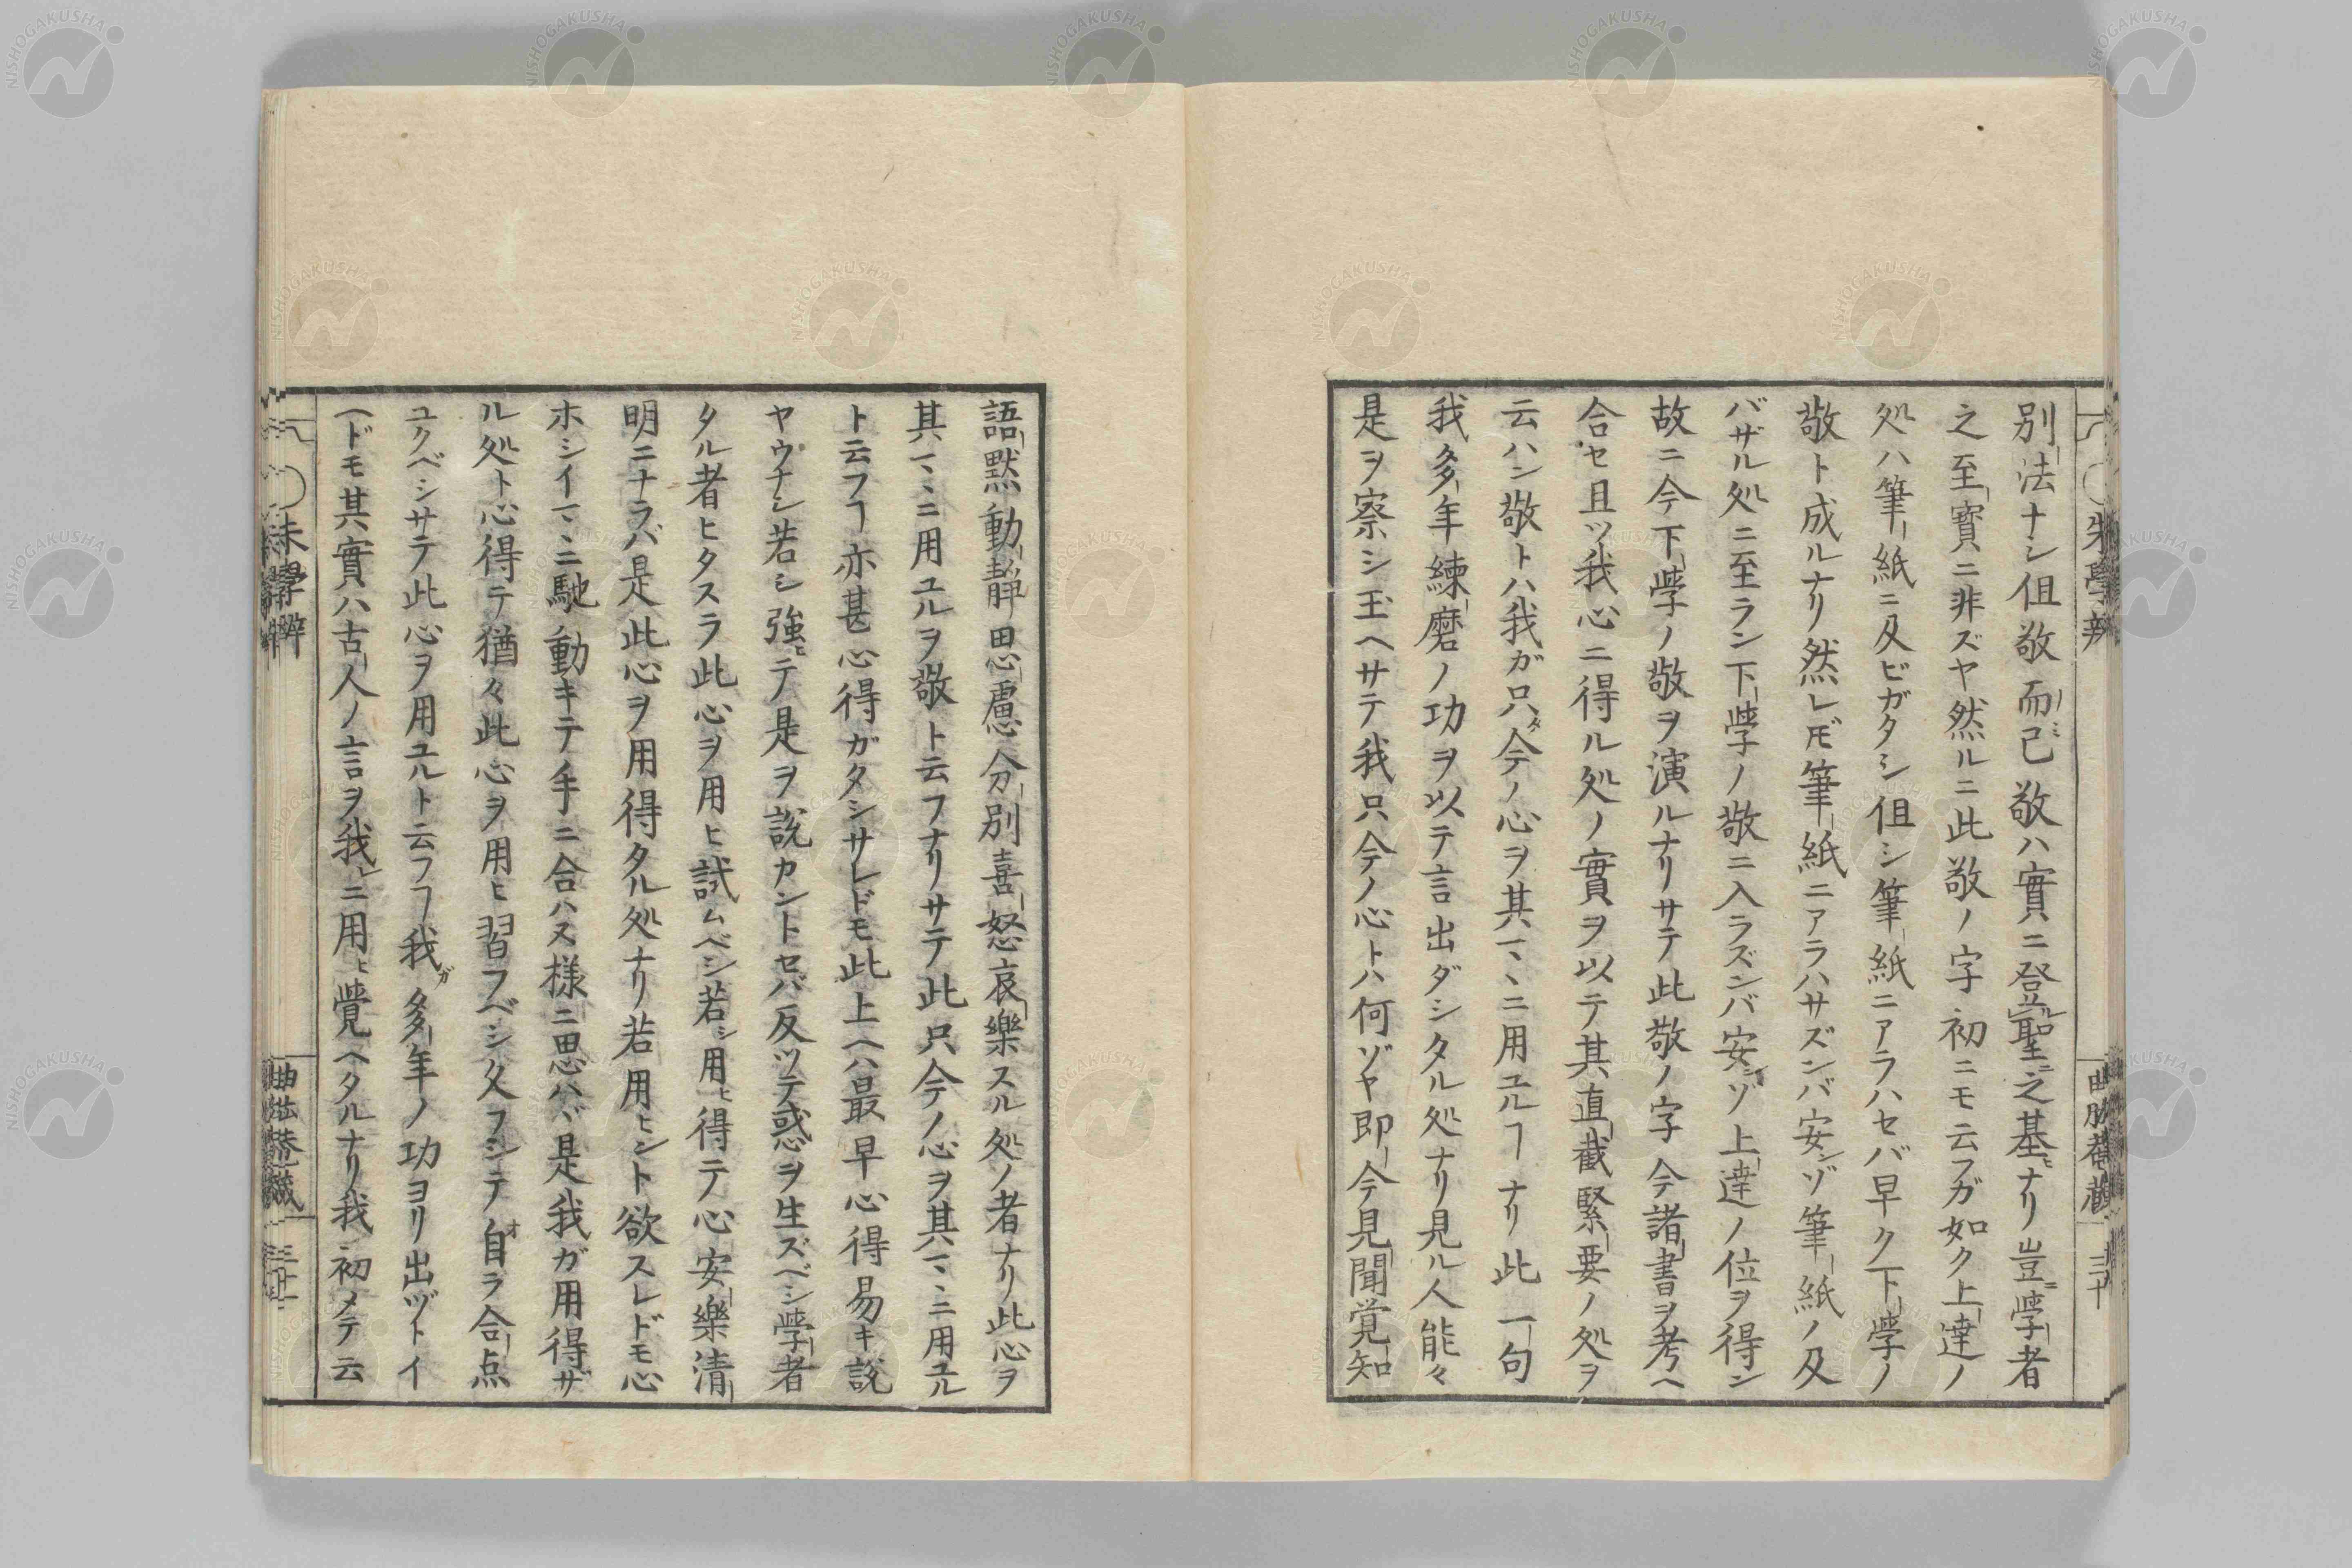 別法ナシ但敬而已敬ハ實ニ登聖之基ナリ豈學者
之至寳ニ非ズヤ然ルニ此敬ノ字初ニモ云フガ如ク上達ノ
処ハ筆紙ニ及ビガタシ但シ筆紙ニアラハセバ早ク下學ノ
敬ト成ルナリ然レ𪜈筆紙ニアラハサズンバ安ンゾ筆紙ノ及
バザル処ニ至ラン下學ノ敬ニ入ラズンバ安ンゾ上達ノ位ヲ得ン
故ニ今下學ノ敬ヲ演ルナリサテ此敬ノ字今諸書ヲ考ヘ
合セ且ツ我心ニ得ル処ノ實ヲ以テ其直截緊要ノ処ヲ
云ハン敬トハ我ガ只今ノ心ヲ其マヽニ用ユルヿナリ此一句
我多年練磨ノ功ヲ以テ言出ダシタル処ナリ見ル人能々
是ヲ察シ玉ヘサテ我只今ノ心トハ何ゾヤ即今見聞覚知
朱學辨
三十
語黙動静思慮分別喜怒哀樂スル処ノ者ナリ此心ヲ
其マヽニ用ユルヲ敬ト云フナリサテ此只今ノ心ヲ其マヽニ用ユル
ト云フヿ亦甚心得ガタシサレドモ此上ヘハ最早心得易キ説
ヤウナシ若シ強ヒテ是ヲ説カントセバ反ツテ惑ヲ生ズベシ學者
タル者ヒタスラ此心ヲ用ヒ試ムベシ若シ用ヒ得テ心安樂清
明ニナラバ是此心ヲ用得タル処ナリ若用ヒント欲スレドモ心
ホシイマヽニ馳動キテ手ニ合ハヌ様ニ思ハバ是我ガ用得ザ
ル処ト心得テ猶々此心ヲ用ヒ習フベシ久フシテ自ラ合点
ユクベシサテ此心ヲ用ユルト云フヿ我ガ多年ノ功ヨリ出ヅトイ
ヘドモ其實ハ古人ノ言ヲ我ニ用ヒ覺ヘタルナリ我初メテ云
朱學辨